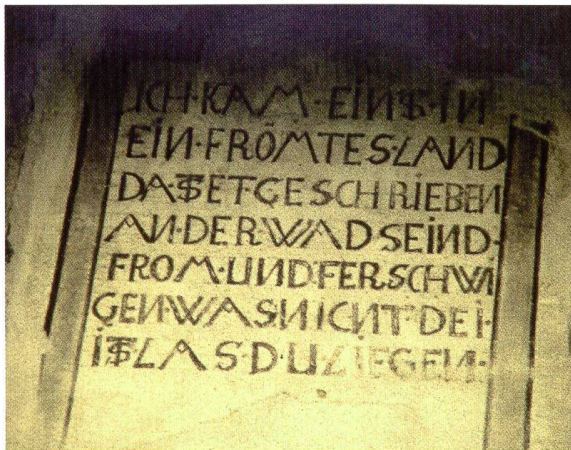 ICH·KAM·EINST·IN
EIN·FRÖMTES·LAND
DASTET·GESCHRIEBEN
AN·DER·WAD SEIND·
FROM·UND FERSCHWI
GEN·WAS NICNT·DEI·
IST LAS·DU LIEGEN·